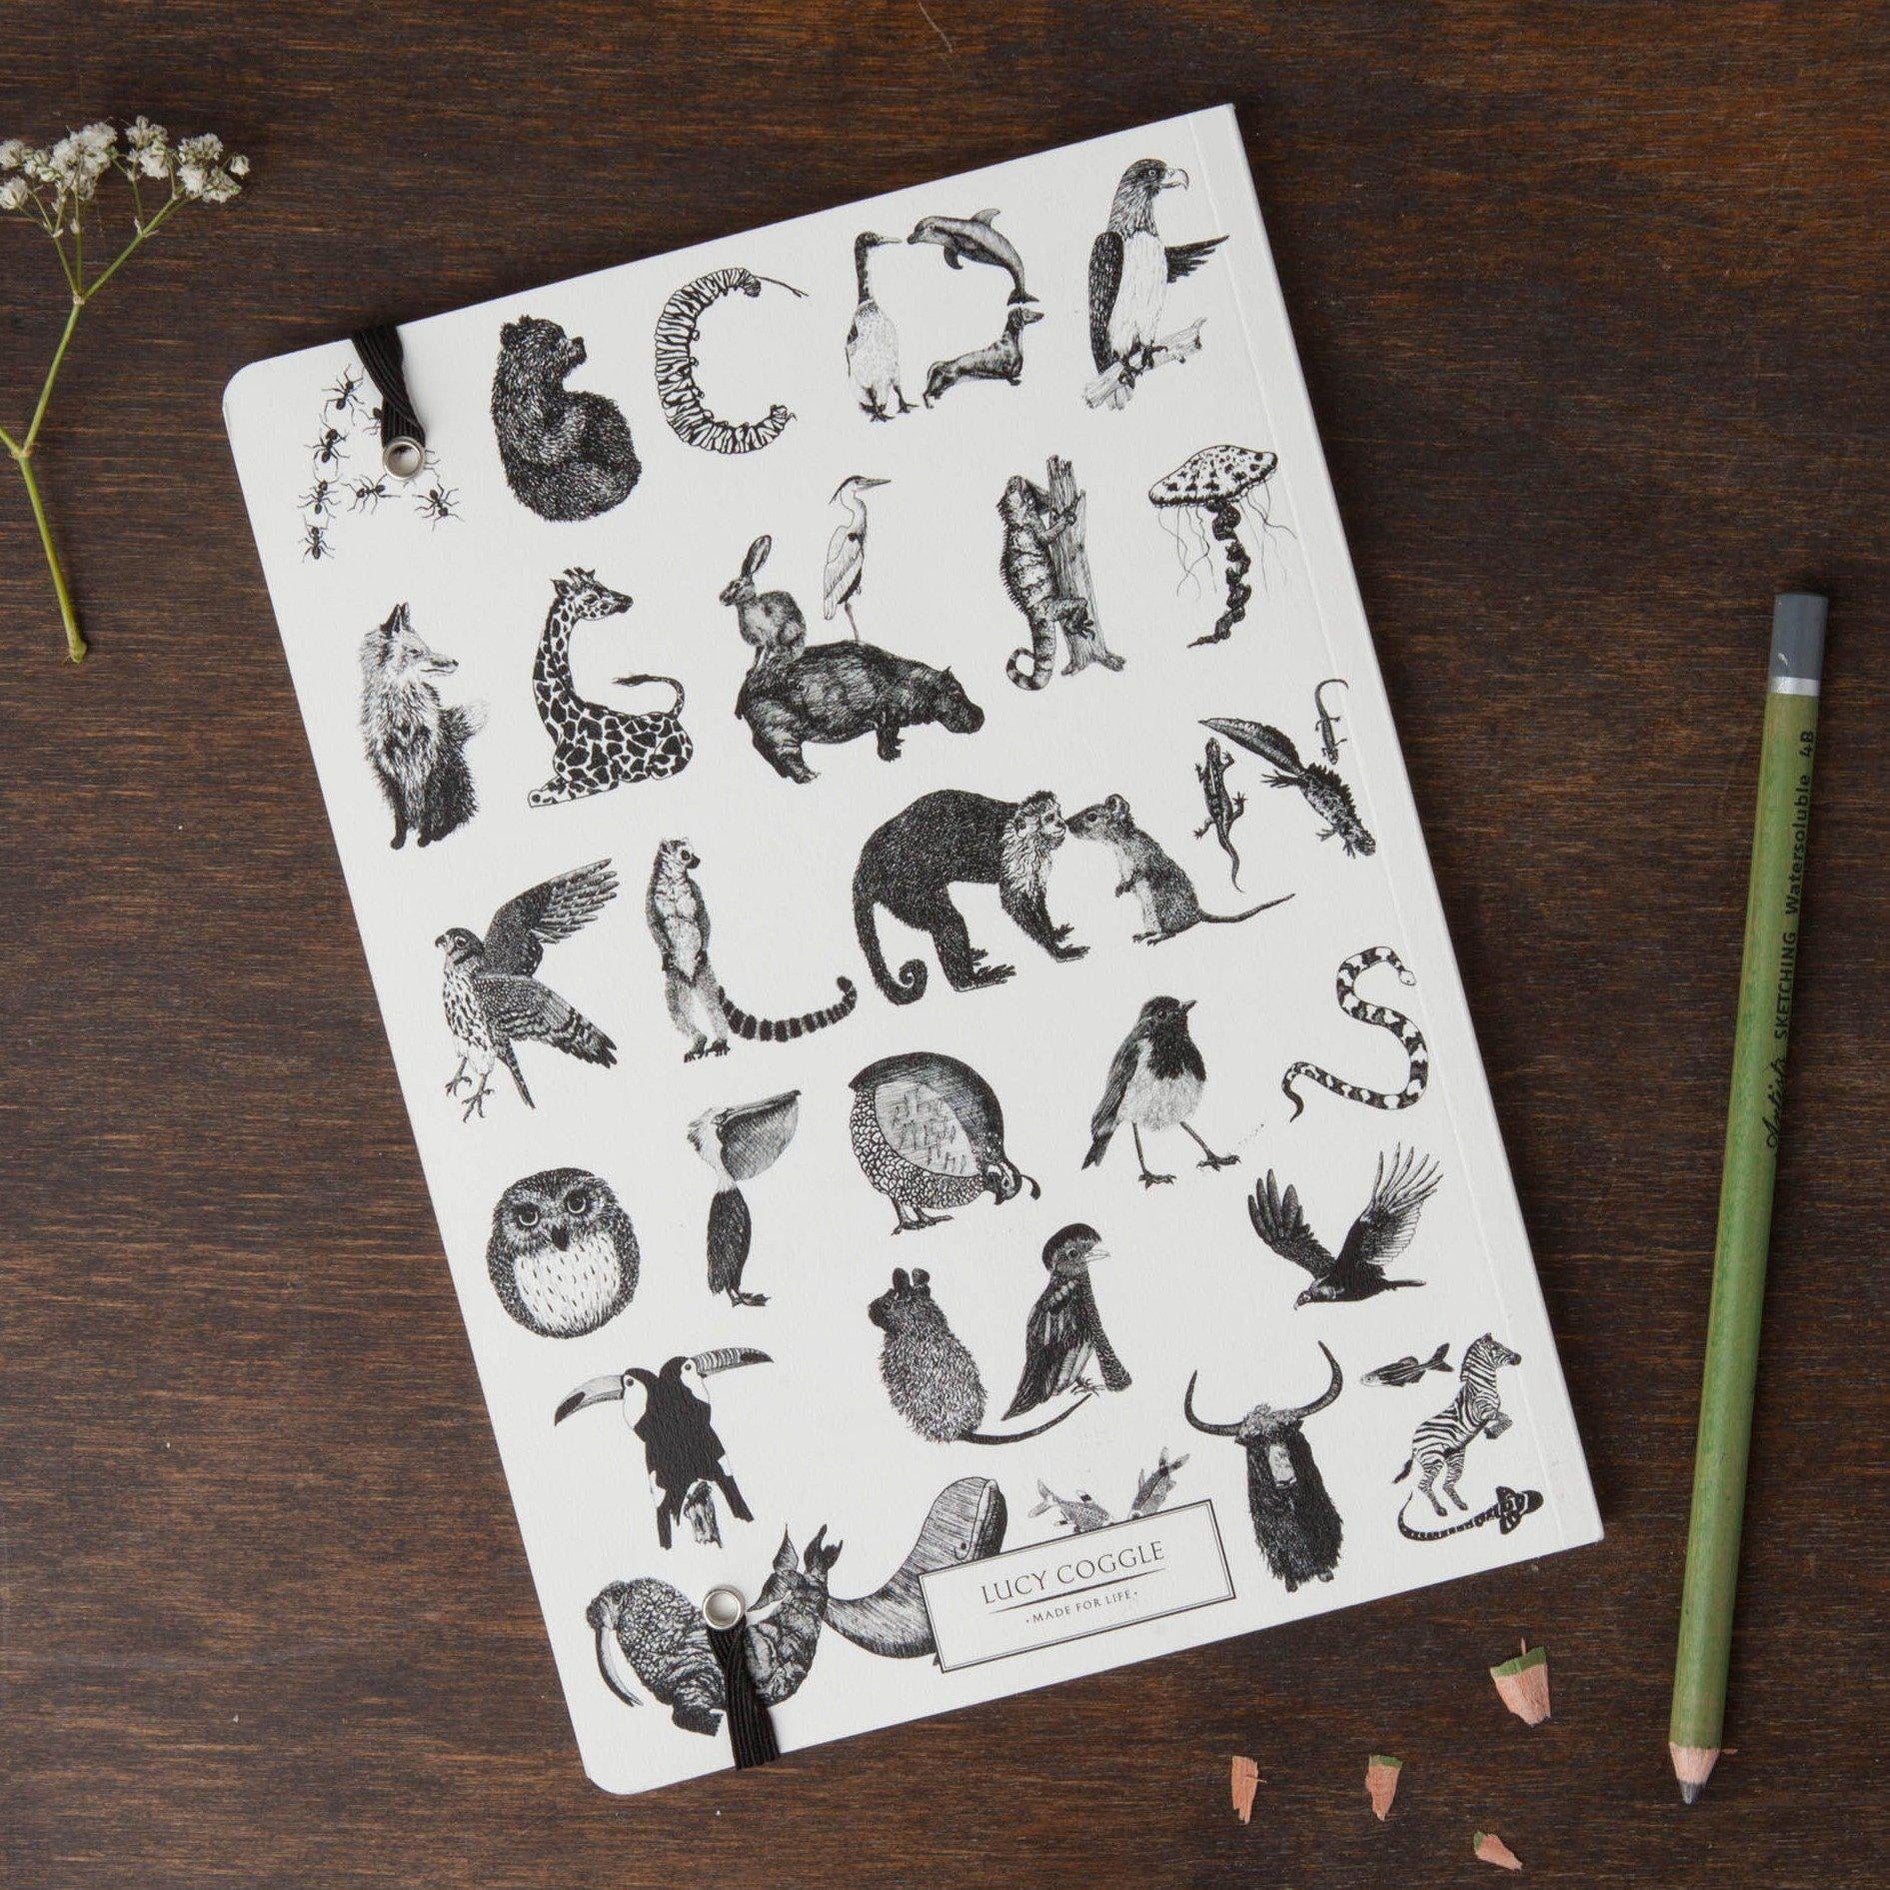 A B C D E
F G H I J
K L M N
O P Q R S
T U V
W X Y Z
LUCY COGGLE
·MADE FOR LIFE·
Artists' SKETCHING Watersoluble 4B